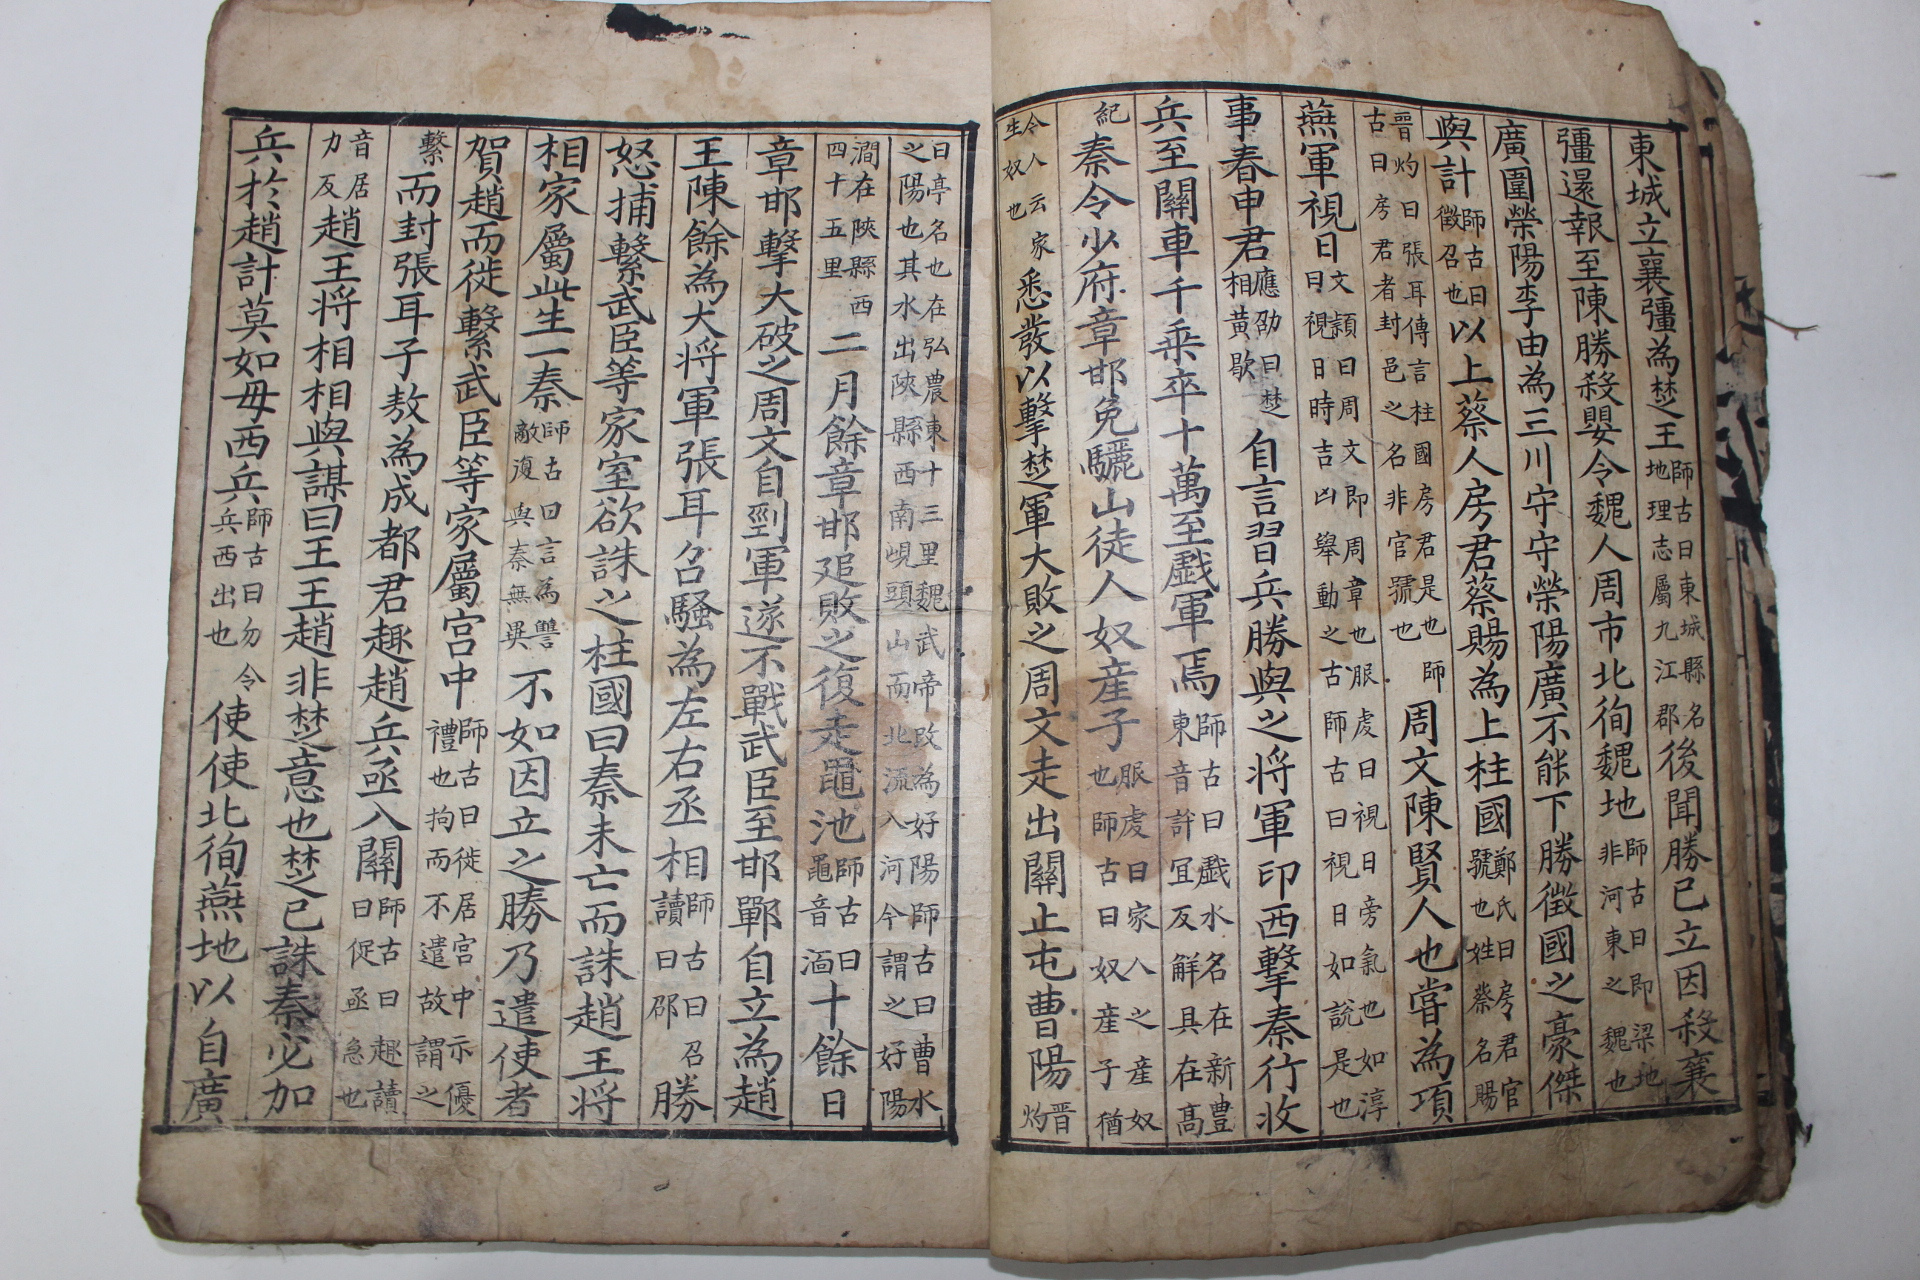 東城立襄彊為楚王師古曰東城縣名地理志屬九江郡後聞勝已立因殺襄
彊還報至陳勝殺嬰令魏人周市北徇魏地師古曰即梁地非河東之魏也
廣圍滎陽李由為三川守守滎陽廣不能下勝徵國之豪傑
與計師古曰徵召也以上蔡人房君蔡賜為上柱國鄭氏曰房君官號也姓蔡名賜
晉灼曰張耳傳言柱國房君是也師古曰房君者封邑之名非官號也周文陳賢人也嘗為項
燕軍視日文穎曰周文即周章也服虔曰視日旁氣也如淳曰視日時吉凶舉動之古師古曰視日如說是也
事春申君應劭曰楚相黃歇自言習兵勝與之将軍印西擊秦行收
兵至關車千乗卒十萬至戲軍焉師古曰戲水名在新豊東音許宜反觧具在髙
紀秦令少府章邯免驪山徒人奴産子服虔曰家人之産奴也師古曰奴産子猶
今人云家生奴也悉發以擊楚軍大敗之周文走出關止屯曹陽晋灼
曰亭名也在弘農東十三里魏武帝改為好陽師古曰曹水之陽也其水出陜縣西南峴頭山而北流入河今謂之好陽
澗在陜縣西四十五里二月餘章邯追敗之復走黽池師古曰黽音湎十餘日
章邯擊大破之周文自剄軍遂不戰武臣至邯鄲自立為趙
王陳餘為大将軍張耳召騷為左右丞相師古曰召讀曰邵勝
怒捕繫武臣等家室欲誅之柱國曰秦未亡而誅趙王将
相家屬此生一秦師古曰言為讐敵復與秦無異不如因立之勝乃遣使者
賀趙而徙繫武臣等家屬宮中師古曰徙居宮中示優禮也拘而不遣故謂之
繫而封張耳子敖為成都君趣趙兵亟入關師古曰趣讀曰促亟急也
音居力反趙王将相相與謀曰王王趙非楚意也楚已誅秦必加
兵於趙計莫如毋西兵師古曰勿令兵西出也使使北徇燕地以自廣